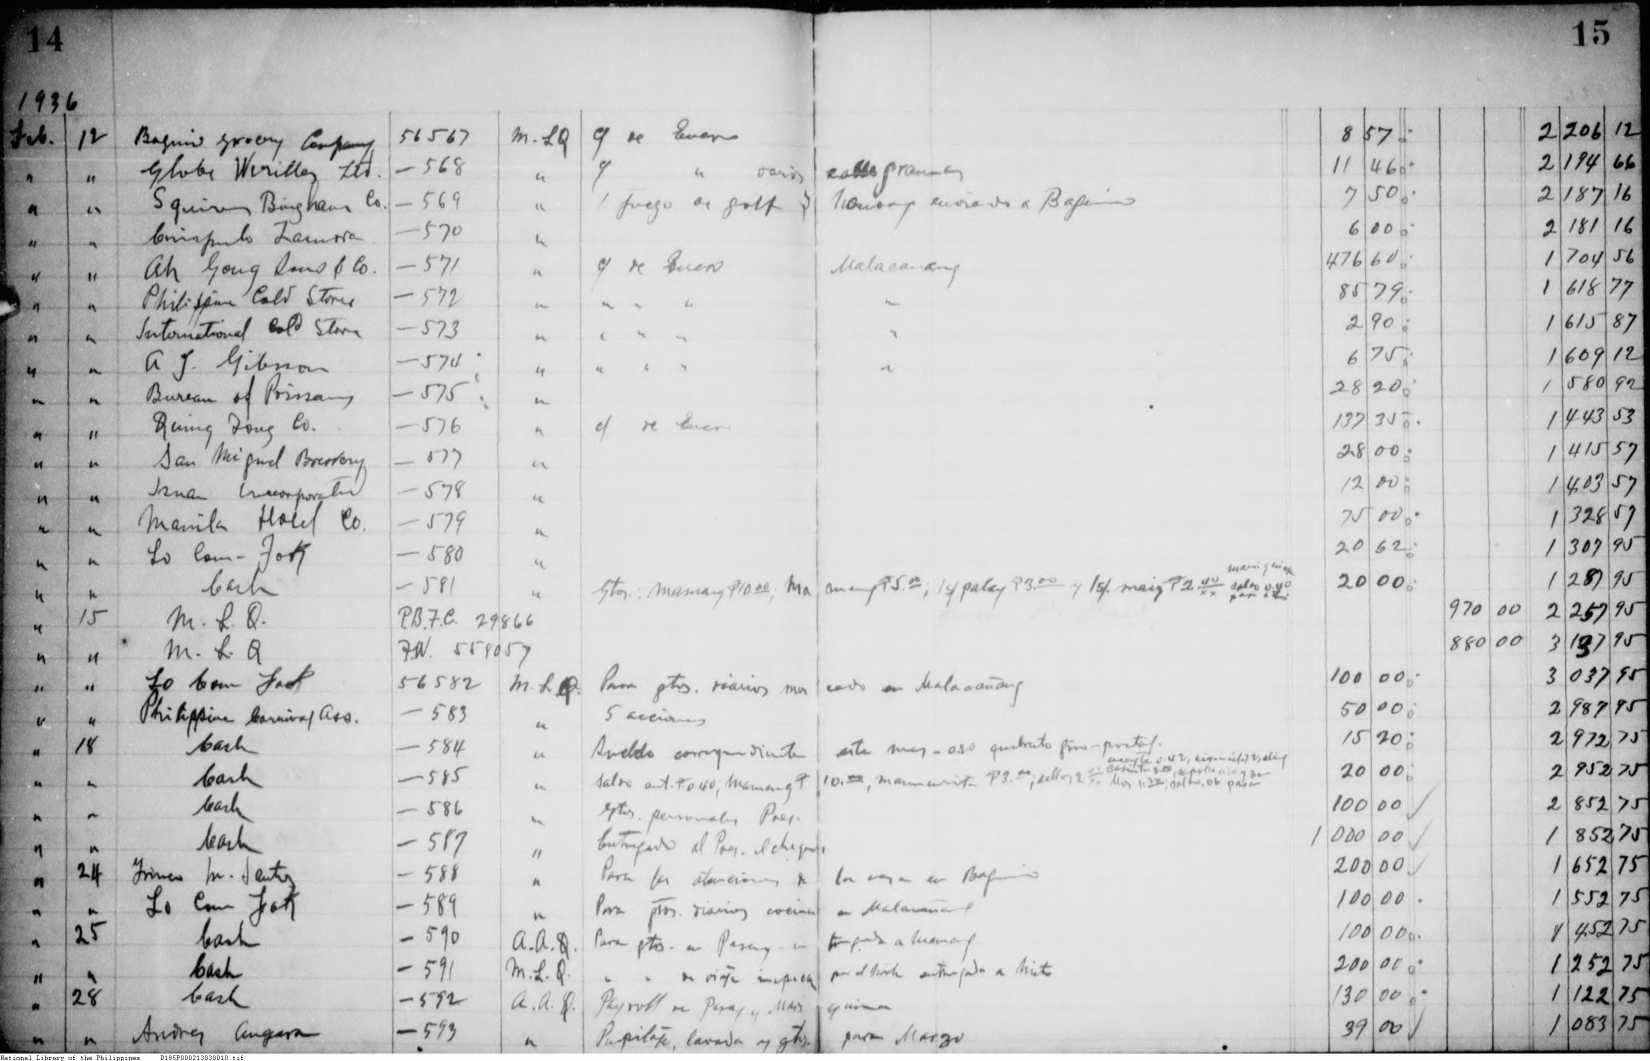 14 15
1936
Feb. 12 Baguio Grocery Company 56567 M.LQ c/ de Enero 8 57 2 206 12
" " Globe Wireless Ltd. —568 " c/ " varios 11 46 2 194 66
" " Squires Bingham Co. —569 " 1 juego de golf enviado a Baguio 7 50 2 187 16
" " Crispulo Zamora —570 " 6 00 2 181 16
" " Ah Gong Sons & Co. —571 " c/ de Enero Malacañang 476 60 1 704 56
" " Philippine Cold Stores —572 " " " " " 85 79 1 618 77
" " International Cold Store —573 " " " " 2 90 1 615 87
" " A. J. Gibsson —574 " " " " " 6 75 1 609 12
" " Bureau of Prisons —575 " 28 20 1 580 92
" " Quing Fong Co. —576 " c/ de Enero 137 35 1 443 53
" " San Miguel Brewery —577 " 28 00 1 415 57
" " Incorporated —578 " 12 00 1 403 57
" " Manila Hotel Co. —579 " 75 00 1 328 57
" " Lo Com-Fok —580 " 20 62 1 307 95
" " Cash —581 " Gtos: Mamang ₱10.00; ₱5.00; palay ₱3.00 y maiz ₱2.40 20 00 1 287 95
" 15 M. L. Q. P.B.F.C. 29866 970 00 2 257 95
" " M. L. Q F.W. 559057 880 00 3 137 95
" " Lo Com Fok 56582 M.L.Q. Para gtos. diarios mercado en Malacañang 100 00 3 037 95
" " Philippine Carnival Ass. —583 " 5 acciones 50 00 2 987 95
" 18 Cash —584 " Sueldo correspondiente este mes - 0.20 giro-postal. 15 20 2 972 75
" " Cash —585 " saldo ant. ₱0.40; Mamang ₱10.00, ₱3.00; sellos 20 00 2 952 75
" " Cash —586 " Gtos. personales Pres. 100 00 2 852 75
" " Cash —587 " Entregado al Pres. el cheque 1 000 00 1 852 75
" 24 —588 " Para las atenciones de la casa en Baguio 200 00 1 652 75
" " Lo Com Fok —589 " Para gtos. diarios cocina en Malacañang 100 00 1 552 75
" 25 Cash —590 A.A.Q. Para gtos. en Pasay entregado a Mamang 100 00 1 452 75
" " Cash —591 M.L.Q. " " de viaje por el Norte entregado a Nieto 200 00 1 252 75
" 28 Cash —592 A.A.Q. Payroll de Pasay y Mariquina 130 00 1 122 75
" " Andres Angara —593 " Pupilaje, lavado y gtos. para Marzo 39 00 1 083 75
National Library of the Philippines D185P000213030010.tif